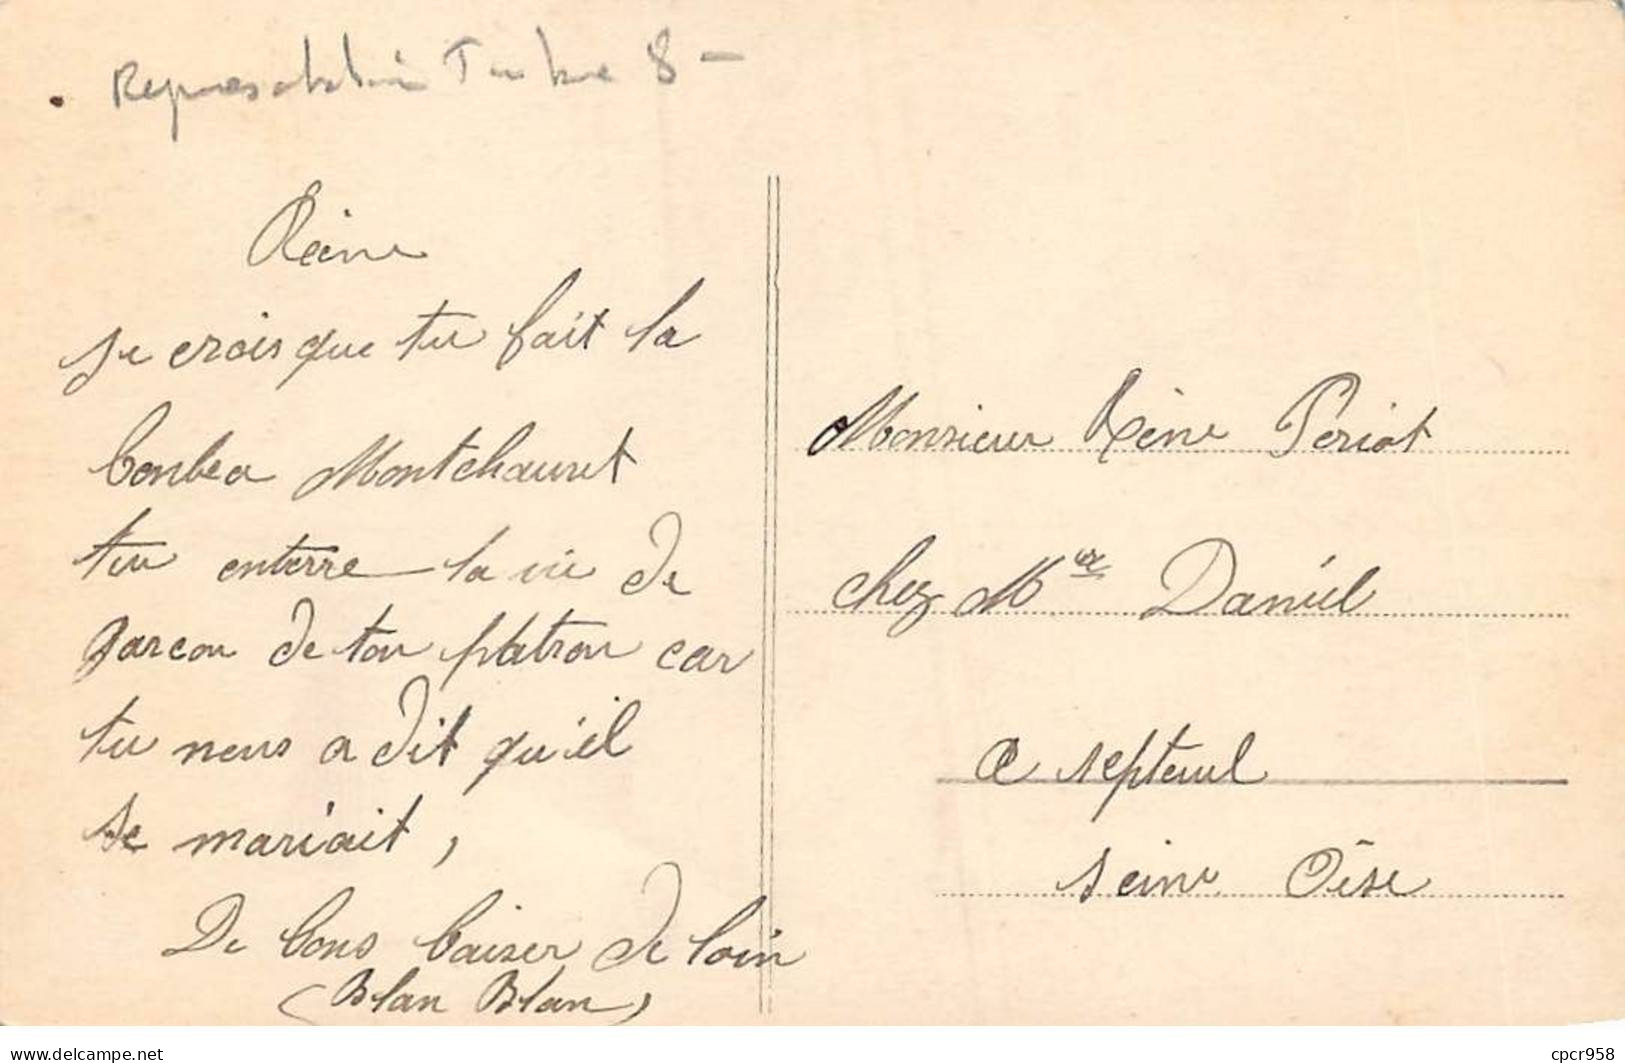 Représentation Timbre 8 -
Réné
Je crois que tu fait la
bonbea Montchauvet
tu enterre la vie de
garcon de ton patron car
tu nous a dit qu'il
se mariait,
De bons baiser de loin
(Blan Blan)
Monsieur Réné Periot
chez Mr Daniel
a septeuil
seine Oise
cpcr958
www.delcampe.net